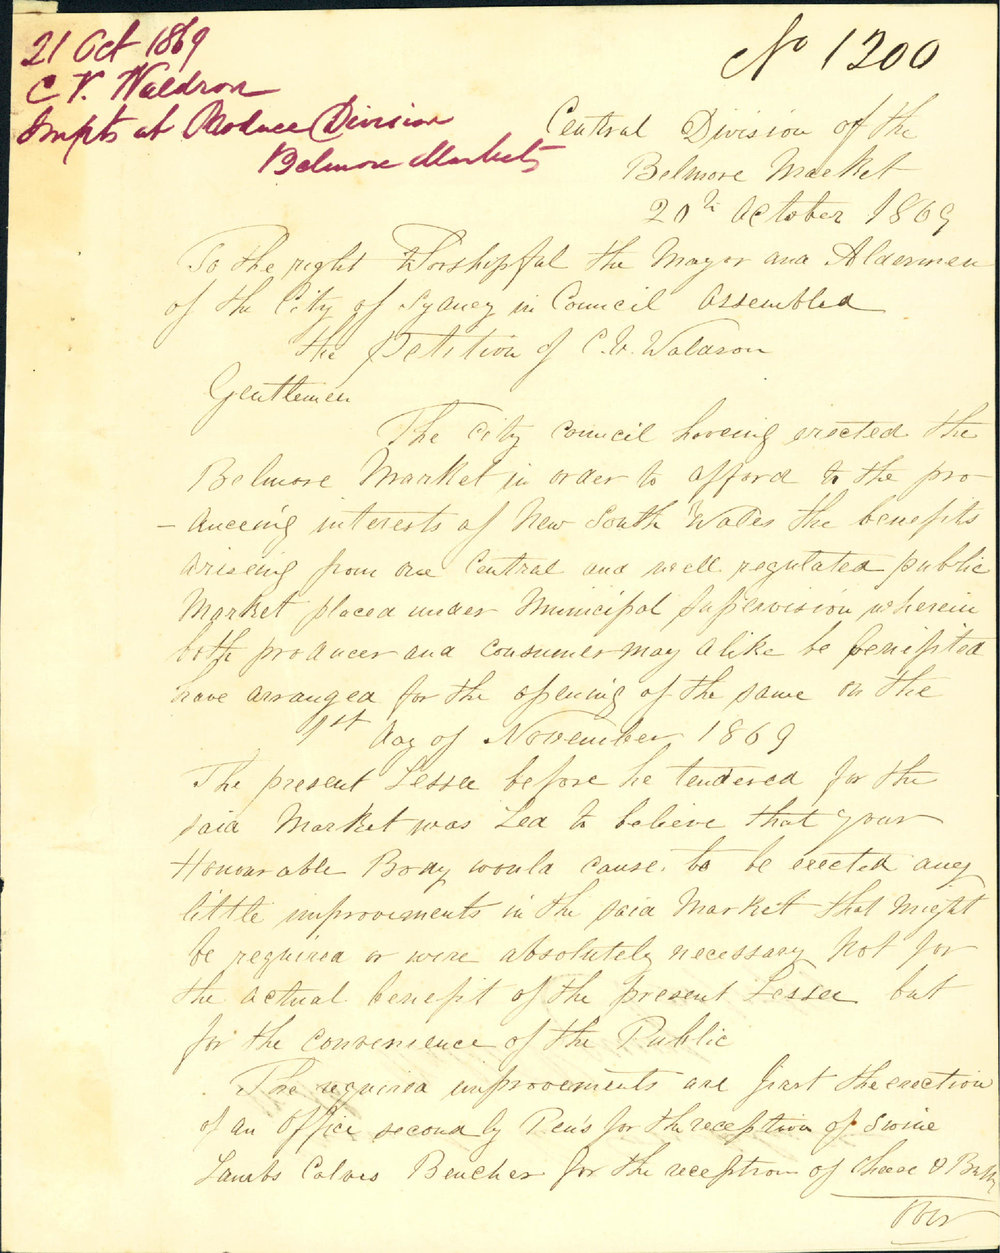 21 Oct 1869
C V. Waldron
Impts at Produce Division
Belmore Markets
No 1200
Central Division of the
Belmore Market
20th October 1869
To the right Worshipful the Mayor and Aldermen
of the City of Sydney in Council Assembled
the Petition of C. V. Waldron
Gentlemen
The City Council haveing erected the
Belmore Market in order to afford to the pro-
-duceing interests of New South Wales the benefits
Ariseing from one Central and well regulated public
Market placed under Municipal Supervision wherein
both producer and consumer may alike be benifited
have arranged for the opening of the same on the
1st day of November 1869
The present Lessee before he tendered for the
said Market was Led to believe that your
Honourable Body would cause to be erected any
little improvements in the said Market that might
be required or were absolutely necessary Not for
the actual benefit of the present Lessee but
for the convenience of the Public
The required improvements are first the erection
of an Office secondly Pens for the reception of Swine
Lambs Calves Benches for the reception of Cheese & Butter
Over